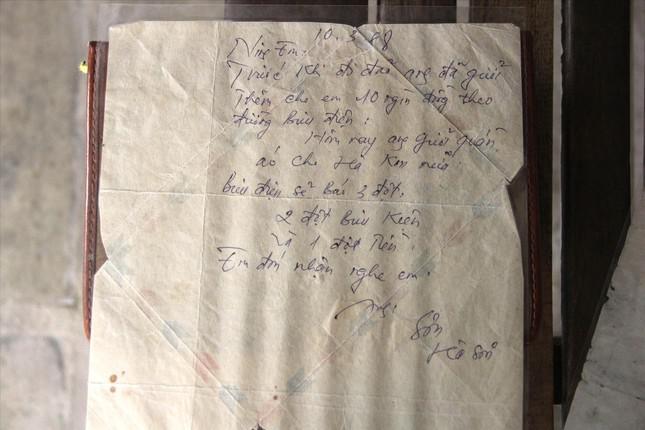 10.3.88
Trước khi đi đảo anh đã gửi
thêm cho em 10 ngàn đồng theo
đường bưu điện.
Hôm nay anh gửi quần
áo cho Hà Kim nữa.
Bưu điện sẽ báo 3 đợt.
2 đợt bưu kiện
và 1 đợt tiền.
Em đón nhận nghe em.
Anh